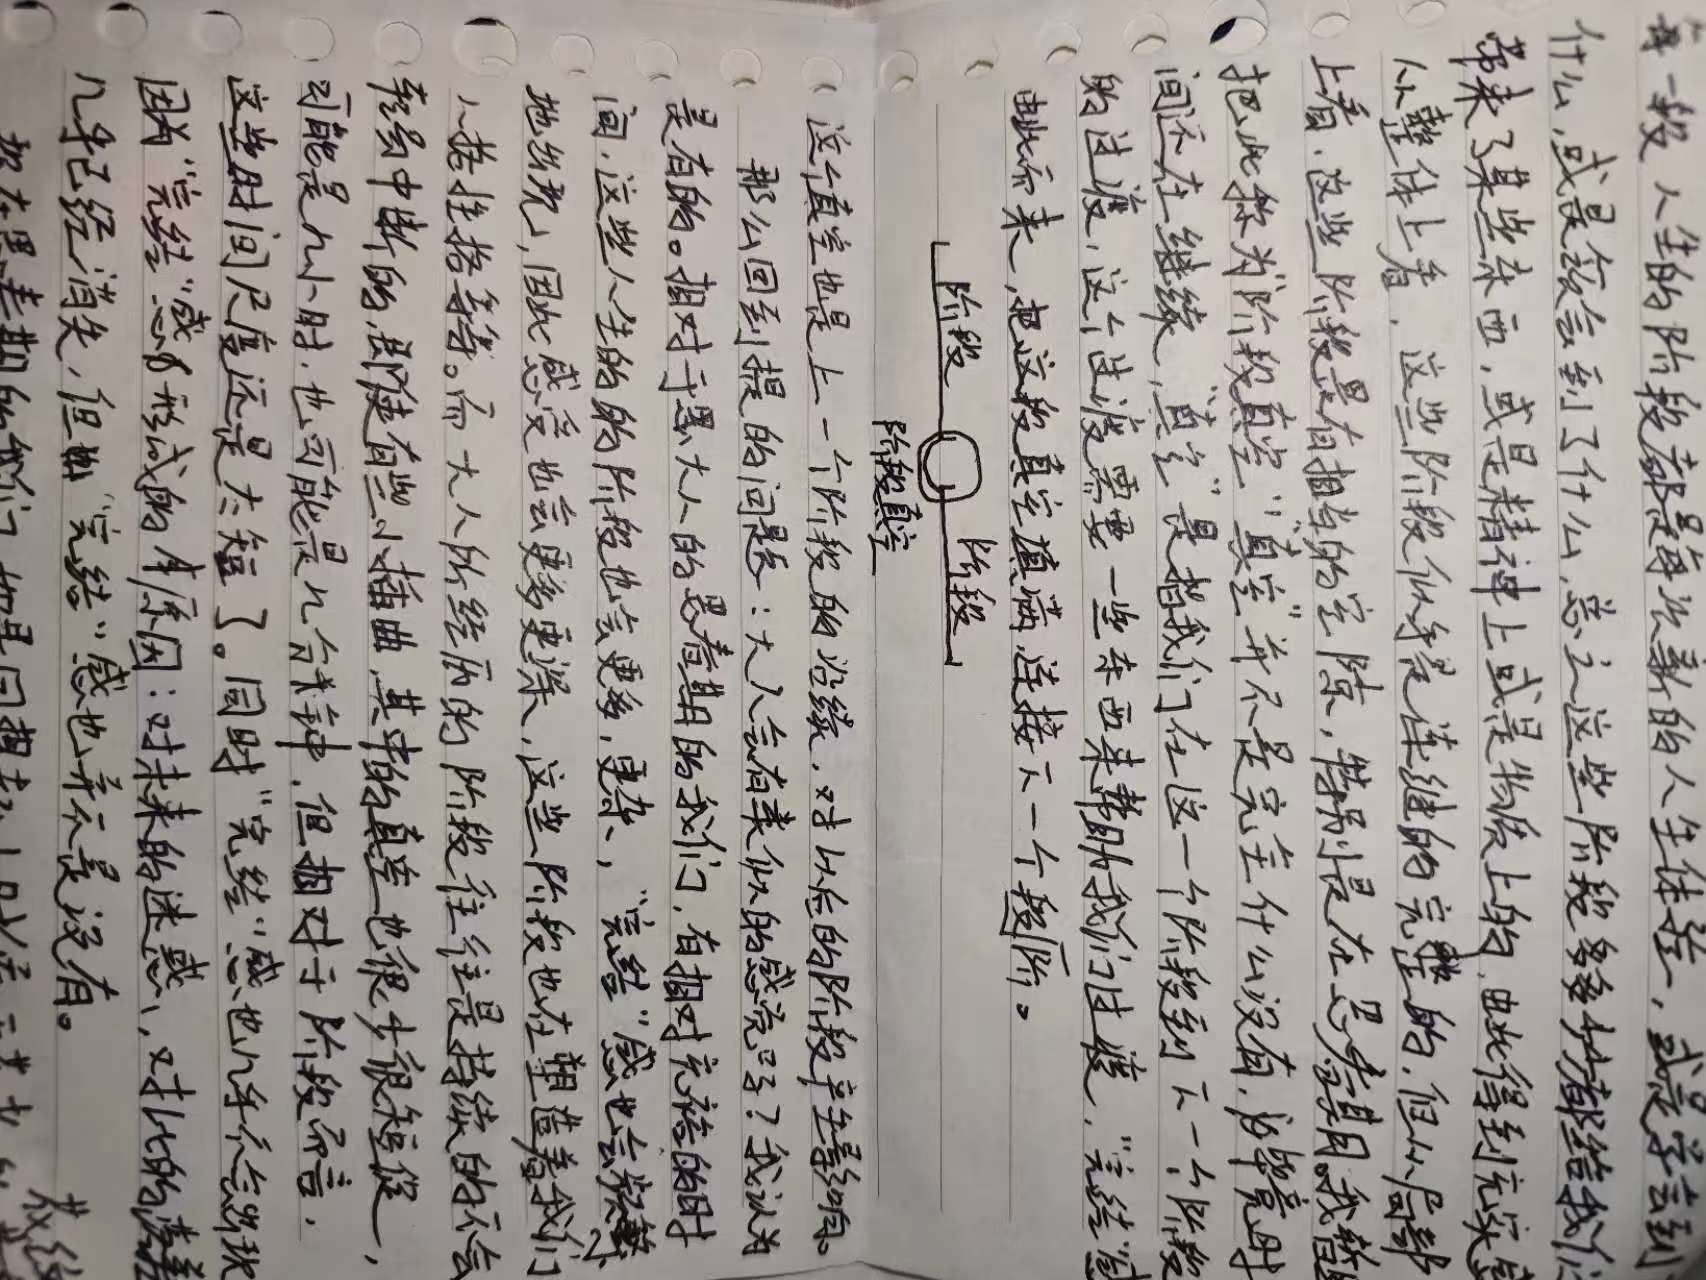 每一段人生的阶段都是每次新的人生体验，或是学会到
什么，或是领会到了什么，总之这些阶段多多少少都给我们
带来了某些东西，或是精神上或是物质上的，由此得到充实
从整体上看，这些阶段似乎是连继的完整的，但从局部
上看，这些阶段是有相当的空隙，特别是在思春期。我暂
把此称为“阶段真空”“真空”并不是完全什么没有，毕竟时
间还在继续，“真空”是指我们在这一个阶段到下一个阶段
的过渡，这个过渡需要一些东西来帮助我们过渡，“完结”感
由此而来，把这段真空填满，连接下一个段阶。
阶段 阶段
阶段真空
这个真空也是上一个阶段的沿续，对以后的阶段产生影响。
那么回到提的问题：大人会有类似的感觉吗？我认为
是有的。相对于愚大人的思春期的我们，有相对充裕的时
间，这些人生的的阶段也会更多，更杂，“完结”感也会频繁
地出现，因此感受也会更多更深，这些阶段也在塑造着我们
人格性格等待。而大人所经历的阶段往往是持续的不会
轻易中断的，即使有些小插曲，其中的真空也很少很短促，
可能是几小时，也可能是几分钟，但相对于阶段而言，
这些时间尺度还是太短了。同时“完结”感也几乎不怎么出现
因为“完结”感形成的本原因：对未来的迷惑，对此的
几乎已经消失，但“完结”感也并不是没有。